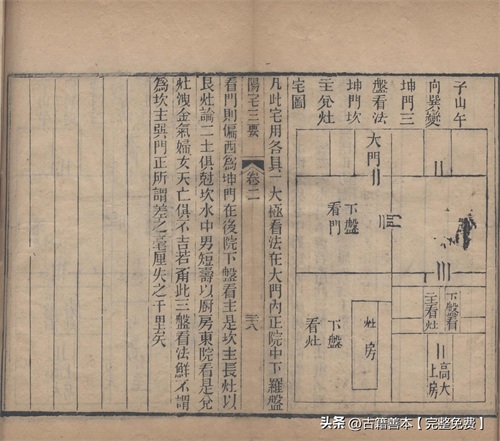 子山午
向巽變
坤門三
盤看法
坤門坎
主兌灶
宅圖
大門
下盤
看門
下盤看
主看灶
高大
上房
灶房
下盤
看灶
凡此宅用各具一大極看法在大門內正院中下羅盤
陽宅三要 卷二
看門則偏西爲坤門在後院下盤看主是坎主長灶以
艮灶論二土俱尅坎水中男短壽以厨房東院看是兌
灶洩金氣婦女夭亡俱不吉若此三盤看法鮮不謂
爲坎主巽門正所謂差之毫厘失之千里矣
头条 @古籍善本【完整免费】